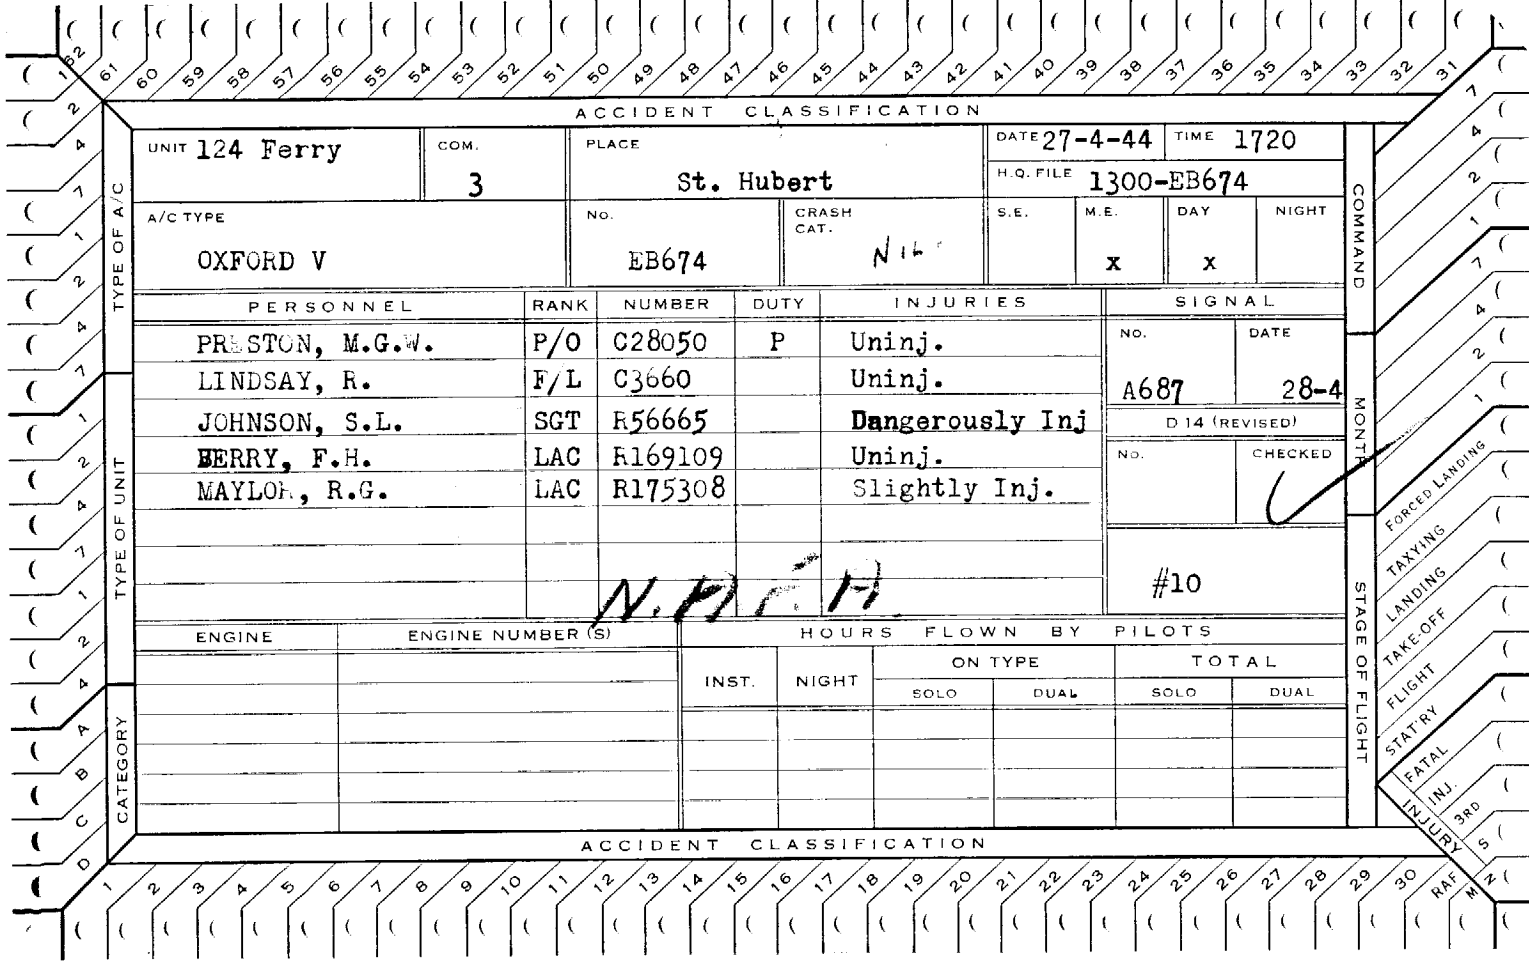 62 61 60 59 58 57 56 55 54 53 52 51 50 49 48 47 46 45 44 43 42 41 40 39 38 37 36 35 34 33 32 31
ACCIDENT CLASSIFICATION
UNIT 124 Ferry COM. 3 PLACE St. Hubert DATE 27-4-44 TIME 1720
H.Q. FILE 1300-EB674
A/C TYPE OXFORD V No. EB674 CRASH CAT. NIL S.E. M.E. x DAY x NIGHT
PERSONNEL RANK NUMBER DUTY INJURIES SIGNAL
PRESTON, M.G.W. P/O C28050 P Uninj. No. A687 DATE 28-4
LINDSAY, R. F/L C3660 Uninj.
JOHNSON, S.L. SGT R56665 Dangerously Inj D 14 (REVISED)
BERRY, F.H. LAC R169109 Uninj. No. CHECKED
MAYLOR, R.G. LAC R175308 Slightly Inj.
#10
ENGINE ENGINE NUMBER (S) HOURS FLOWN BY PILOTS
INST. NIGHT ON TYPE TOTAL
SOLO DUAL SOLO DUAL
ACCIDENT CLASSIFICATION
1 2 3 4 5 6 7 8 9 10 11 12 13 14 15 16 17 18 19 20 21 22 23 24 25 26 27 28 29 30 RAF M N
TYPE OF A/C
1 2 4 7 1 2 4 7
TYPE OF UNIT
1 2 4 7 1 2 4
CATEGORY
A B C D
COMMAND
7 4 2 1
MONTH
7 4 2 1
STAGE OF FLIGHT
FORCED LANDING
TAXYING
LANDING
TAKE-OFF
FLIGHT
STAT'RY
INJURY
FATAL
INJ.
3RD
S